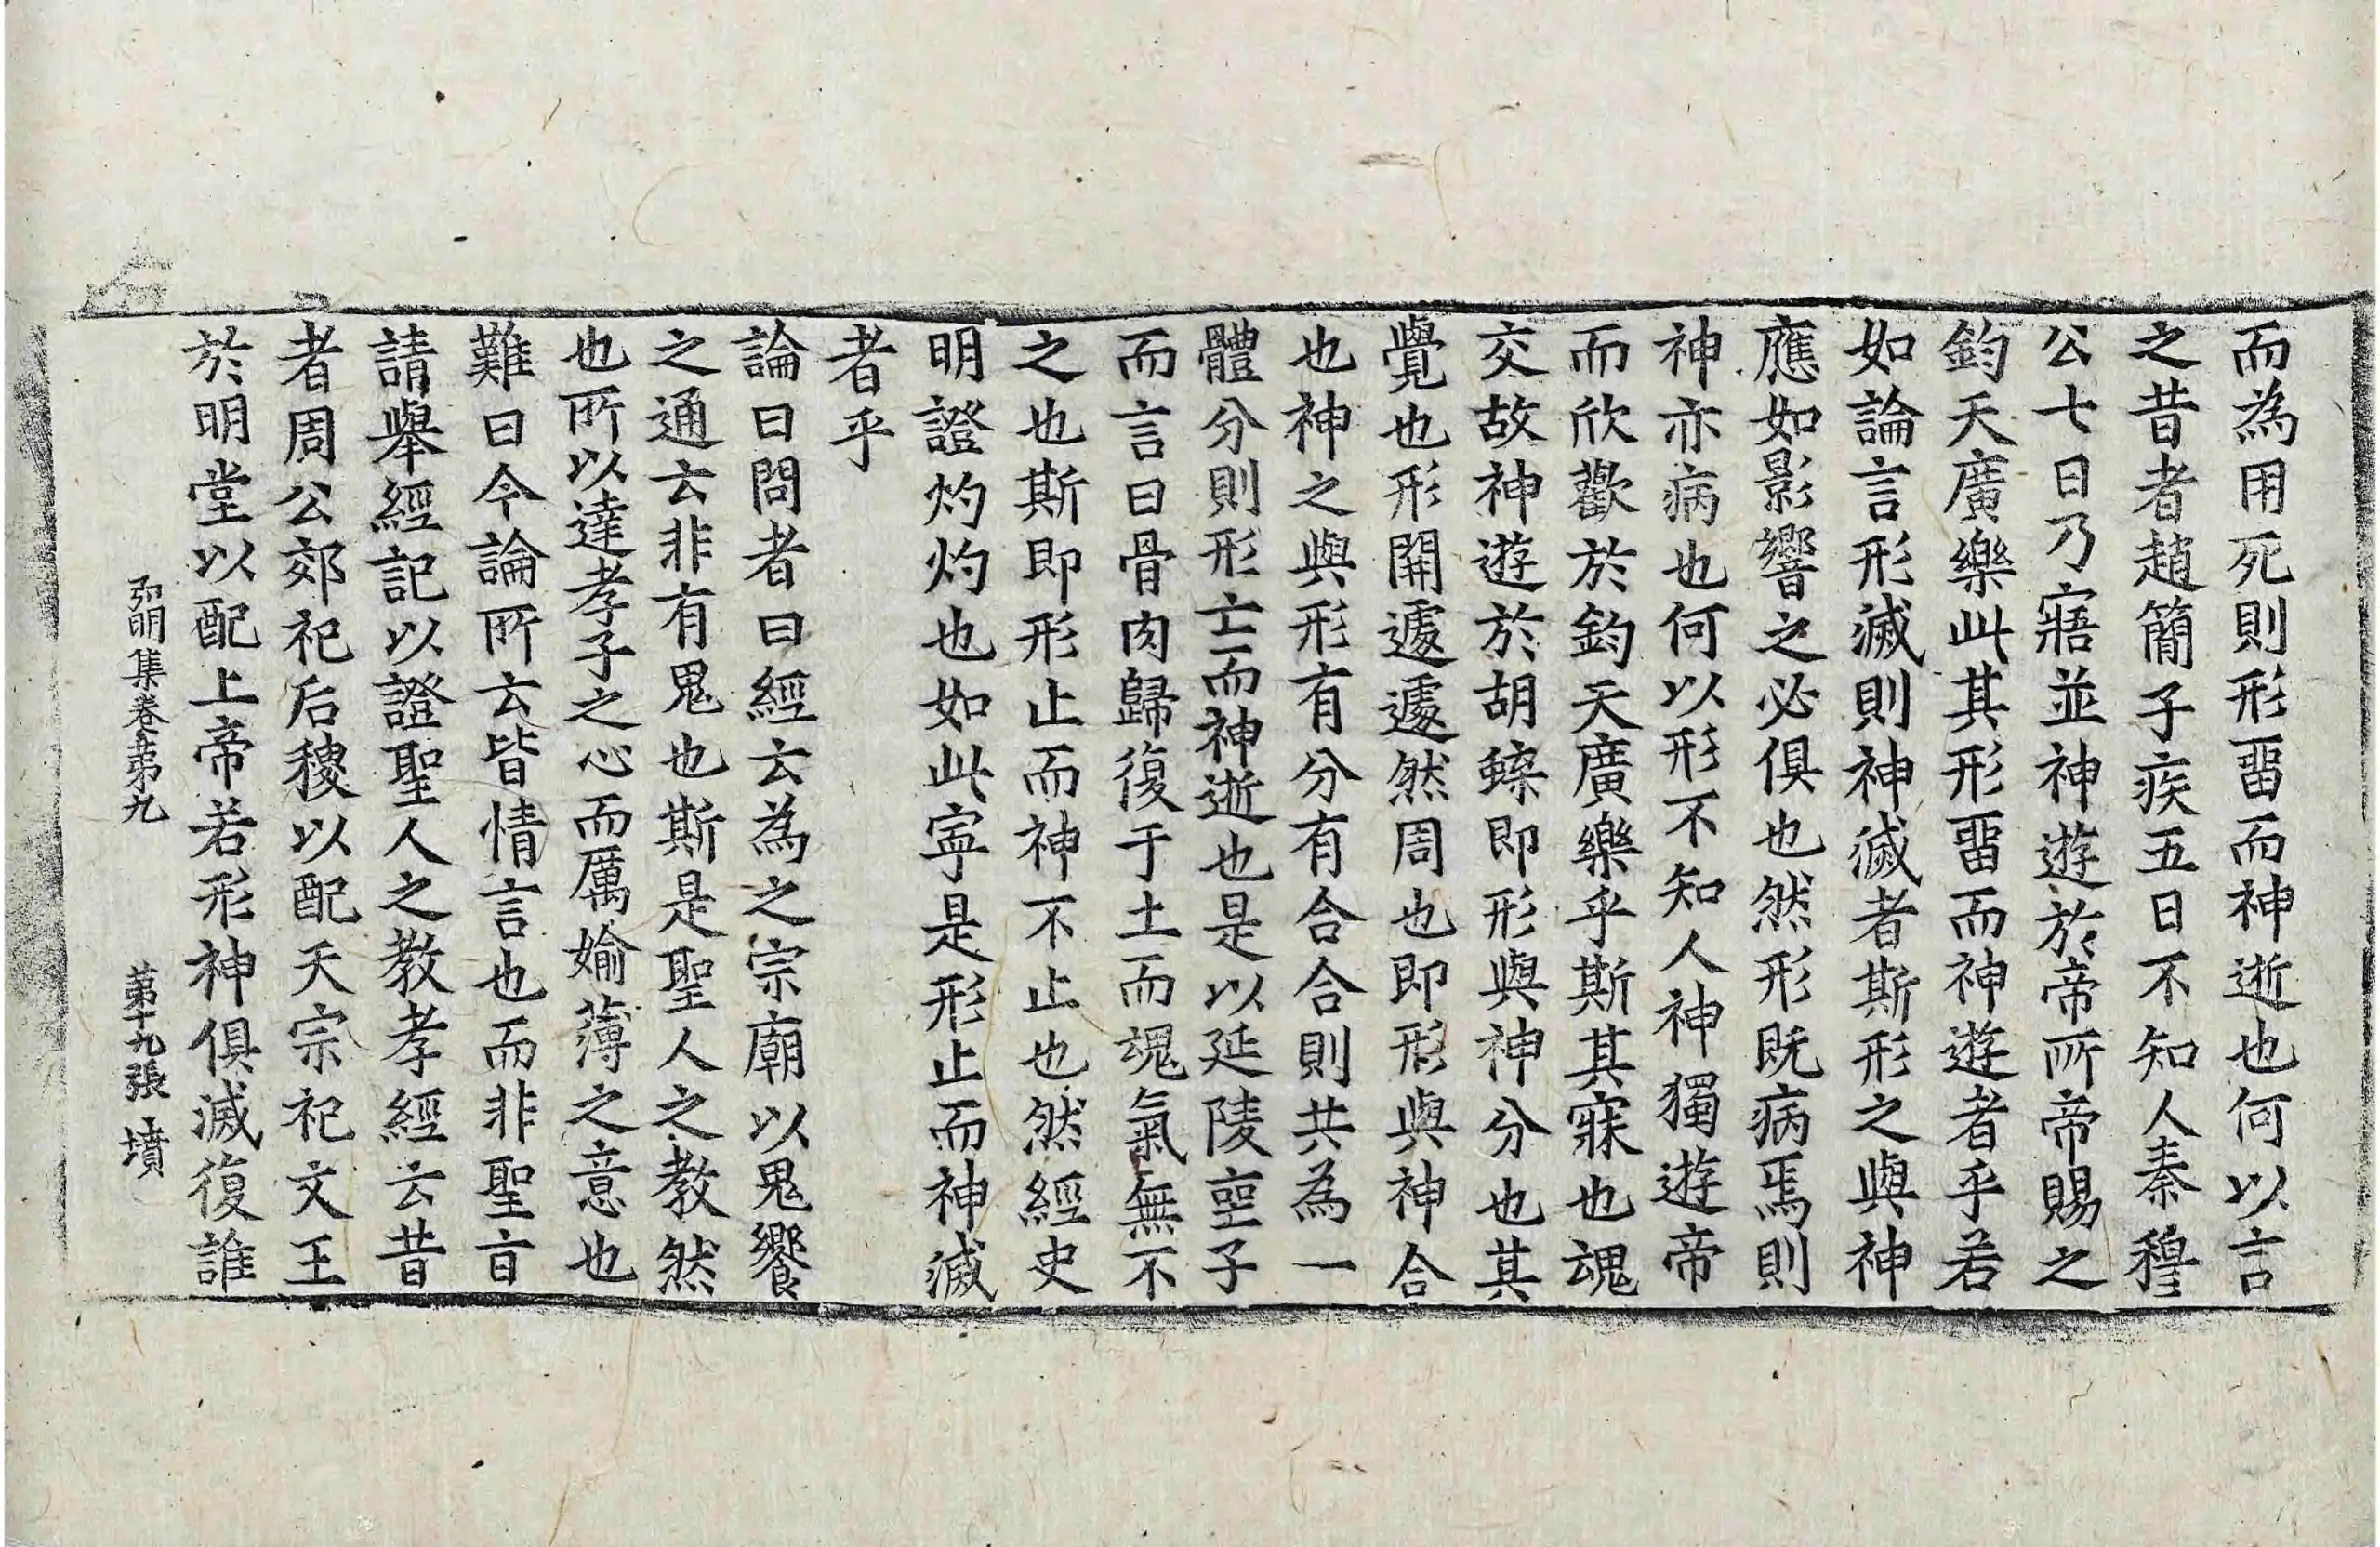 而為用死則形畱而神逝也何以言
之昔者趙簡子疾五日不知人秦穆
公七日乃寤並神遊於帝所帝賜之
鈞天廣樂此其形畱而神遊者乎若
如論言形滅則神滅者斯形之與神
應如影響之必俱也然形既病焉則
神亦病也何以形不知人神獨遊帝
而欣歡於鈞天廣樂乎斯其寐也魂
交故神遊於胡蜨即形與神分也其
覺也形開遽遽然周也即形與神合
也神之與形有分有合合則共為一
體分則形亡而神逝也是以延陵䘮子
而言曰骨肉歸復于土而魂氣無不
之也斯即形止而神不止也然經史
明證灼灼也如此寧是形止而神滅
者乎
論曰問者曰經云為之宗廟以鬼饗
之通云非有鬼也斯是聖人之教然
也所以達孝子之心而厲媮薄之意也
難曰今論所云皆情言也而非聖旨
請舉經記以證聖人之教孝經云昔
者周公郊祀后稷以配天宗祀文王
於明堂以配上帝若形神俱滅復誰
弘明集卷第九 第十九張 墳